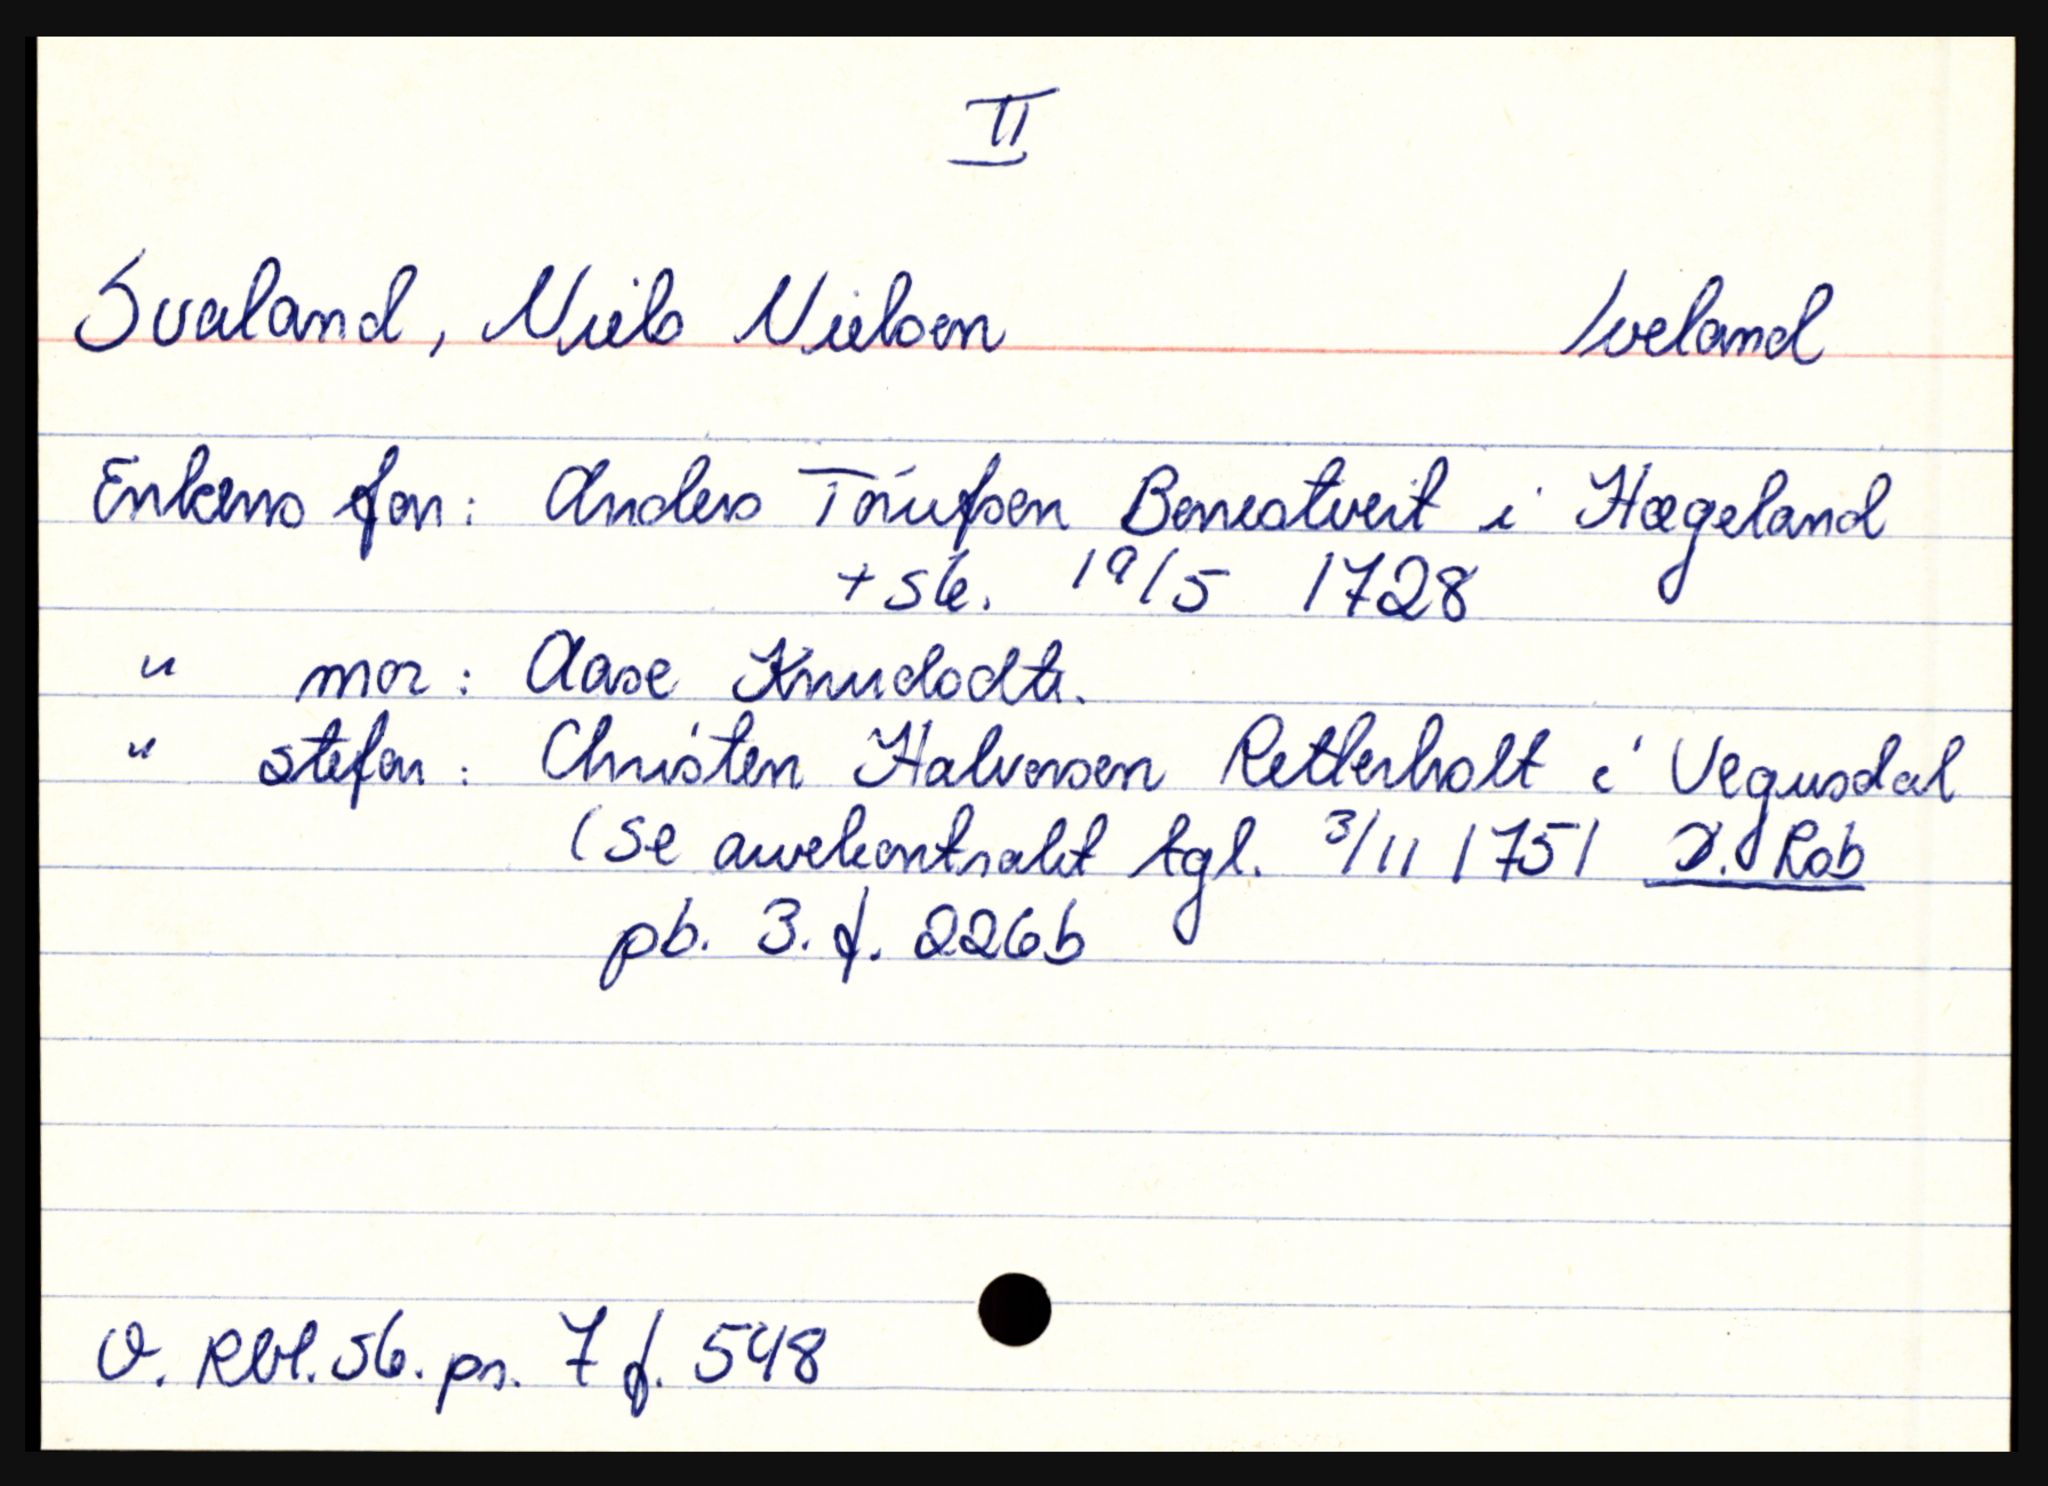 II
Svaland, Niels Nielsen Iveland
Enkens far: Anders Torufsen Benestveit i Hægeland
+ sk. 19/5 1728
" mor: Aase Knudsdtr.
" stefar: Christen Halvorsen Retterholt i Vegusdal
(se arvekontrakt tgl. 3/11 1751 D. Rab
pb. 3. f. 226b
O. Rbl. sk. pr. 7 f. 548